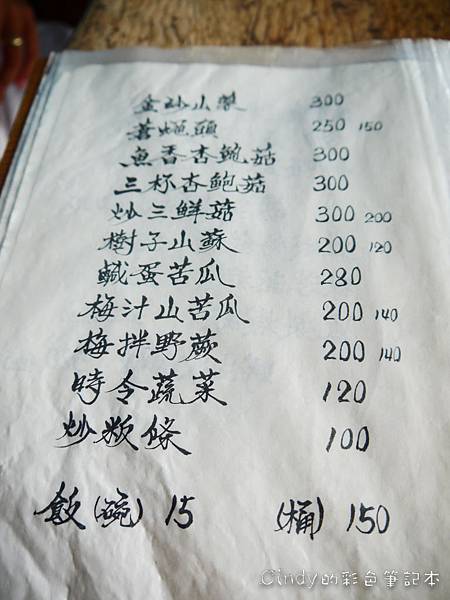 金沙小製 300
蒼蠅頭 250 150
魚香杏鮑菇 300
三杯杏鮑菇 300
炒三鮮菇 300 200
樹子山蘇 200 120
鹹蛋苦瓜 280
梅汁山苦瓜 200 140
梅拌野蕨 200 140
時令蔬菜 120
炒粄條 100
飯(碗) 15 (桶) 150
Cindy的彩色筆記本